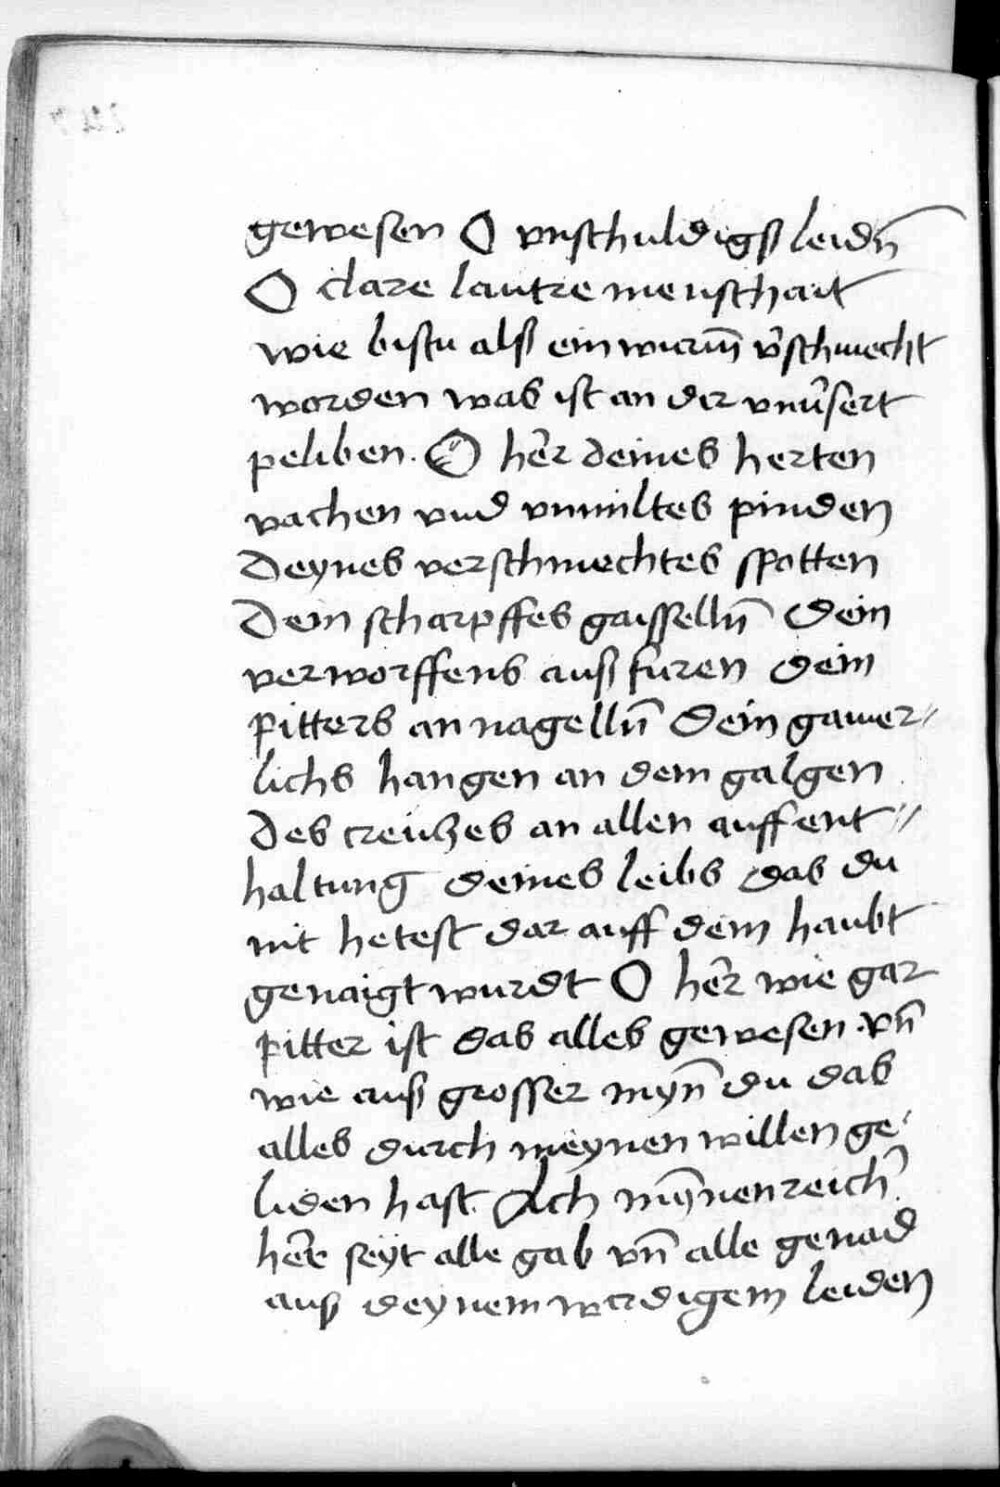 gewesen O vnschuldigß leidn̄
O clare lautre menschait
wie bistu alß ein wurm̄ v̄schmecht
worden was ist an dir vnv̄sert
peliben. O her̄ deines herten
vachen vnd vnmiltes pinden
Deynes verschmechtes spotten
Dein scharpffes gaisselln̄ Dein
verworffens auß furen dein
pitters an nagelln̄ Dein gamer〃
lichs hangen an dem galgen
Des creuczes an allen auffent〃
haltung deines leibs das du
nit hetest dar auff dem haubt
genaigt wurdt O her̄ wie gar
pitter ist das alles gewesen. vn̄
wie auß grosser myn̄ du das
alles durch meynen willen ge〃
liden hast. Ach mȳnenreich̄
her̄e seyt alle gab vn̄ alle genad
auß deynem wirdigem leiden